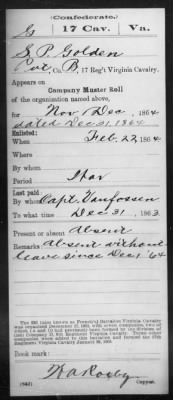 (Confederate.)
G 17 Cav. Va.
S. P. Golden
Pvt, Co. B, 17 Reg't Virginia Cavalry.
Appears on
Company Muster Roll
of the organization named above,
for Nov & Dec, 1864
dated Dec 31, 1864
Enlisted:
When Feb. 22, 1864
Where
By whom
Period War
Last paid:
By whom Capt. Vanfossen
To what time Dec 31, 1863
Present or absent Absent
Remarks: Absent without
leave since Dec 1 '64
Book mark:
(642)
Copyist.